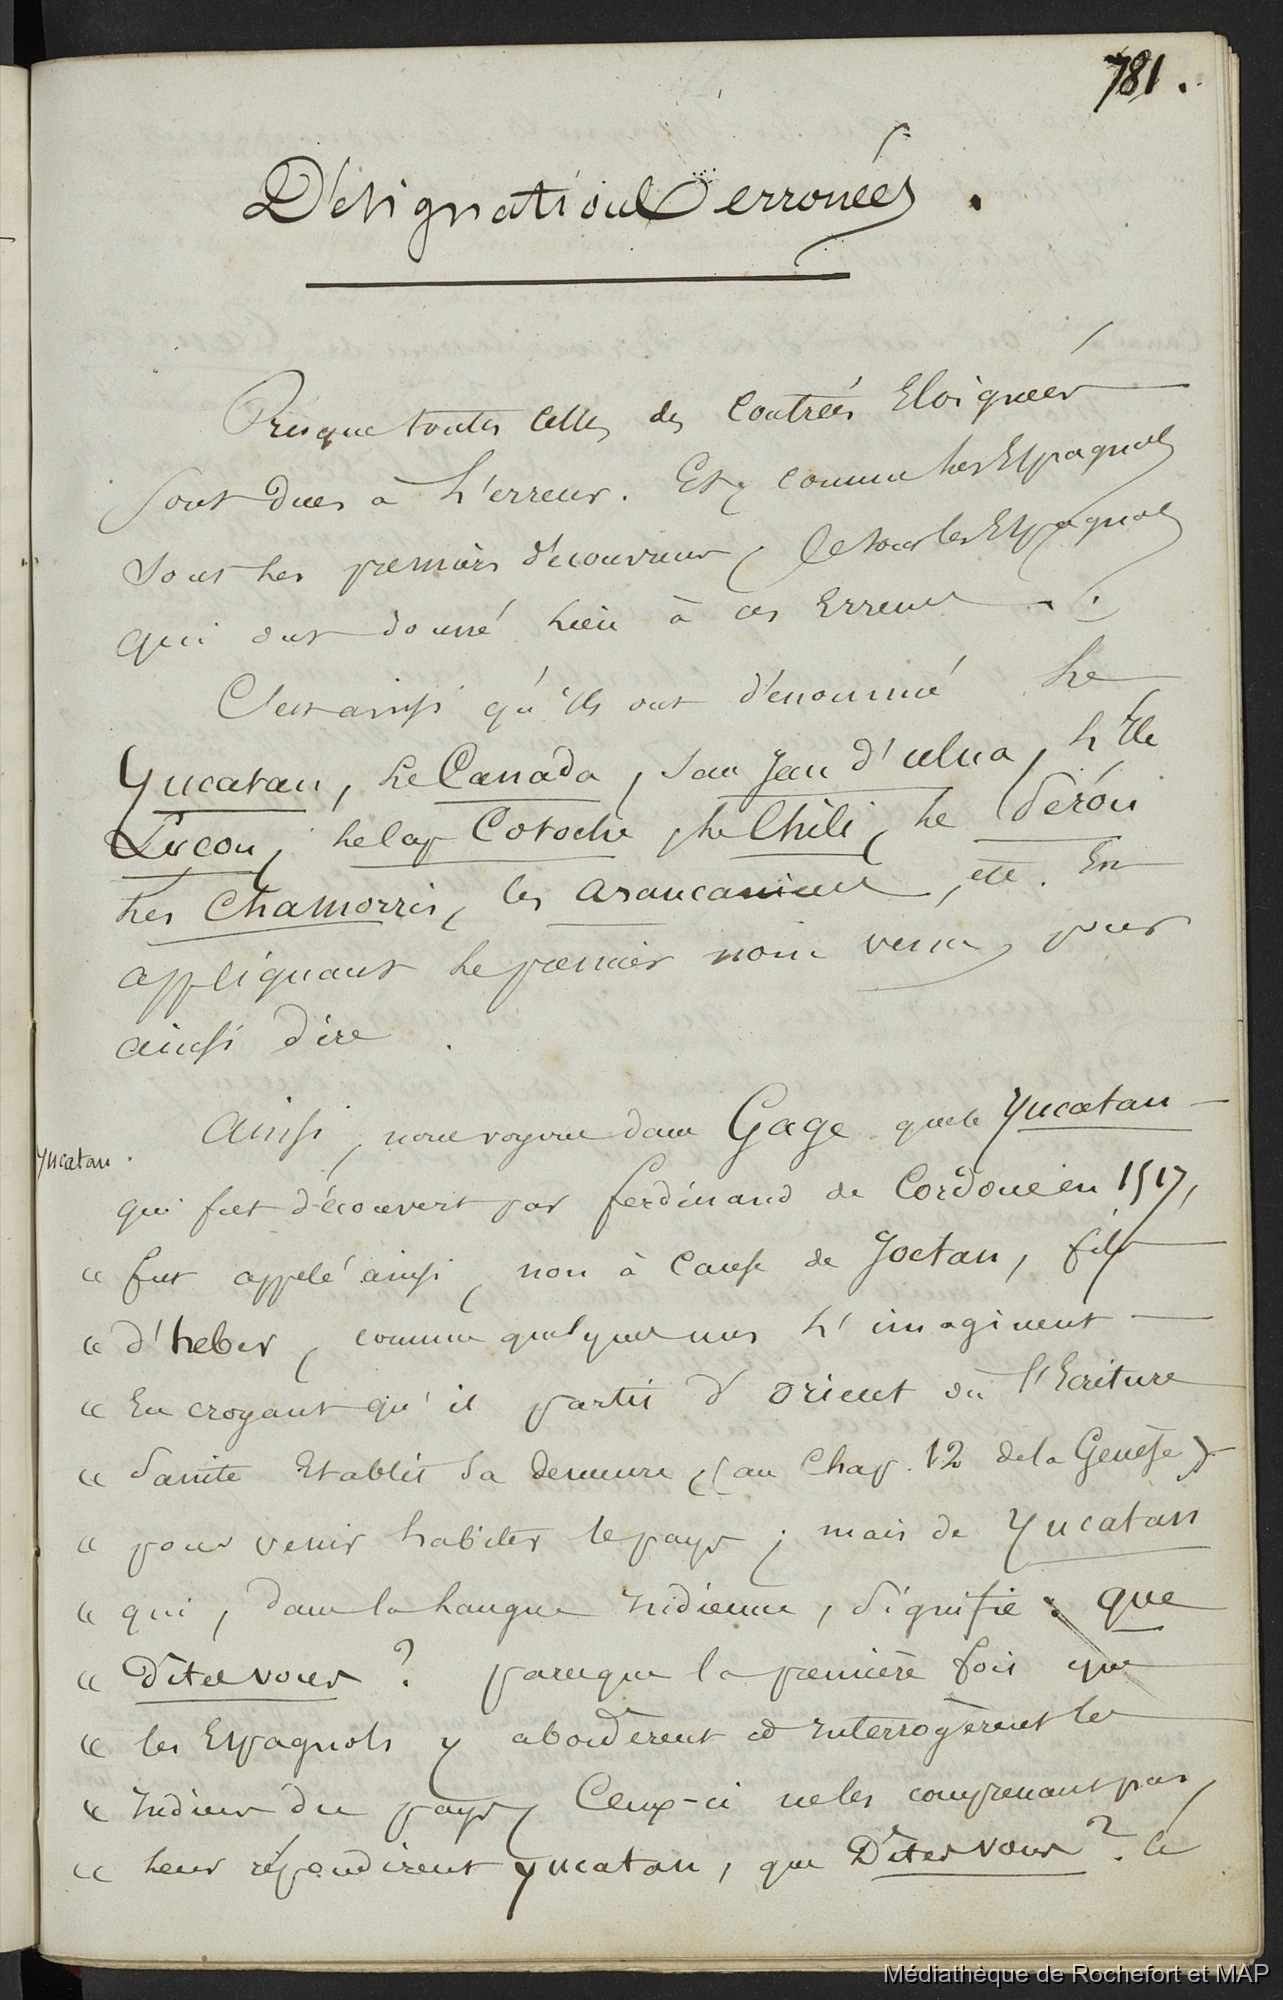 781.
Désignations erronées.
Presque toutes celles des contrées Eloignées
sont dues à l'erreur. Et, comme les Espagnols
sont les premiers découvreurs, ce sont les Espagnols
qui ont donné lieu à ces Erreurs.
C'est ainsi qu'ils ont dénommé le
Yucatan, le Canada, San Jean d'ulua, l'Ile
Luçon, le Cap Cotoche, le Chili, le Pérou
les Chamorris, les araucaniens, etc. En
appliquant le premier nom venu, pour
ainsi dire.
Ainsi, nous voyons dans Gage que le Yucatan
Yucatan.
qui fut découvert par ferdinand de Cordoue en 1517,
" fut appelé ainsi, non à cause de Joctan, fils
" d'heber, comme quelques uns l'imaginent
" En croyant qu'il partit d'orient où l'Ecriture
" Sainte Etablit sa demeure, (au Chap. 12 de la Genèse)
" pour venir habiter le pays; mais de Yucatan
" qui, dans la langue indienne, signifie: que
" Dites vous? parceque la première fois que
" les Espagnols y abordèrent et interrogèrent les
" indiens du pays, Ceux-ci ne les comprenant pas,
" leur répondirent yucatan, que Dites vous? Ce
Médiathèque de Rochefort et MAP